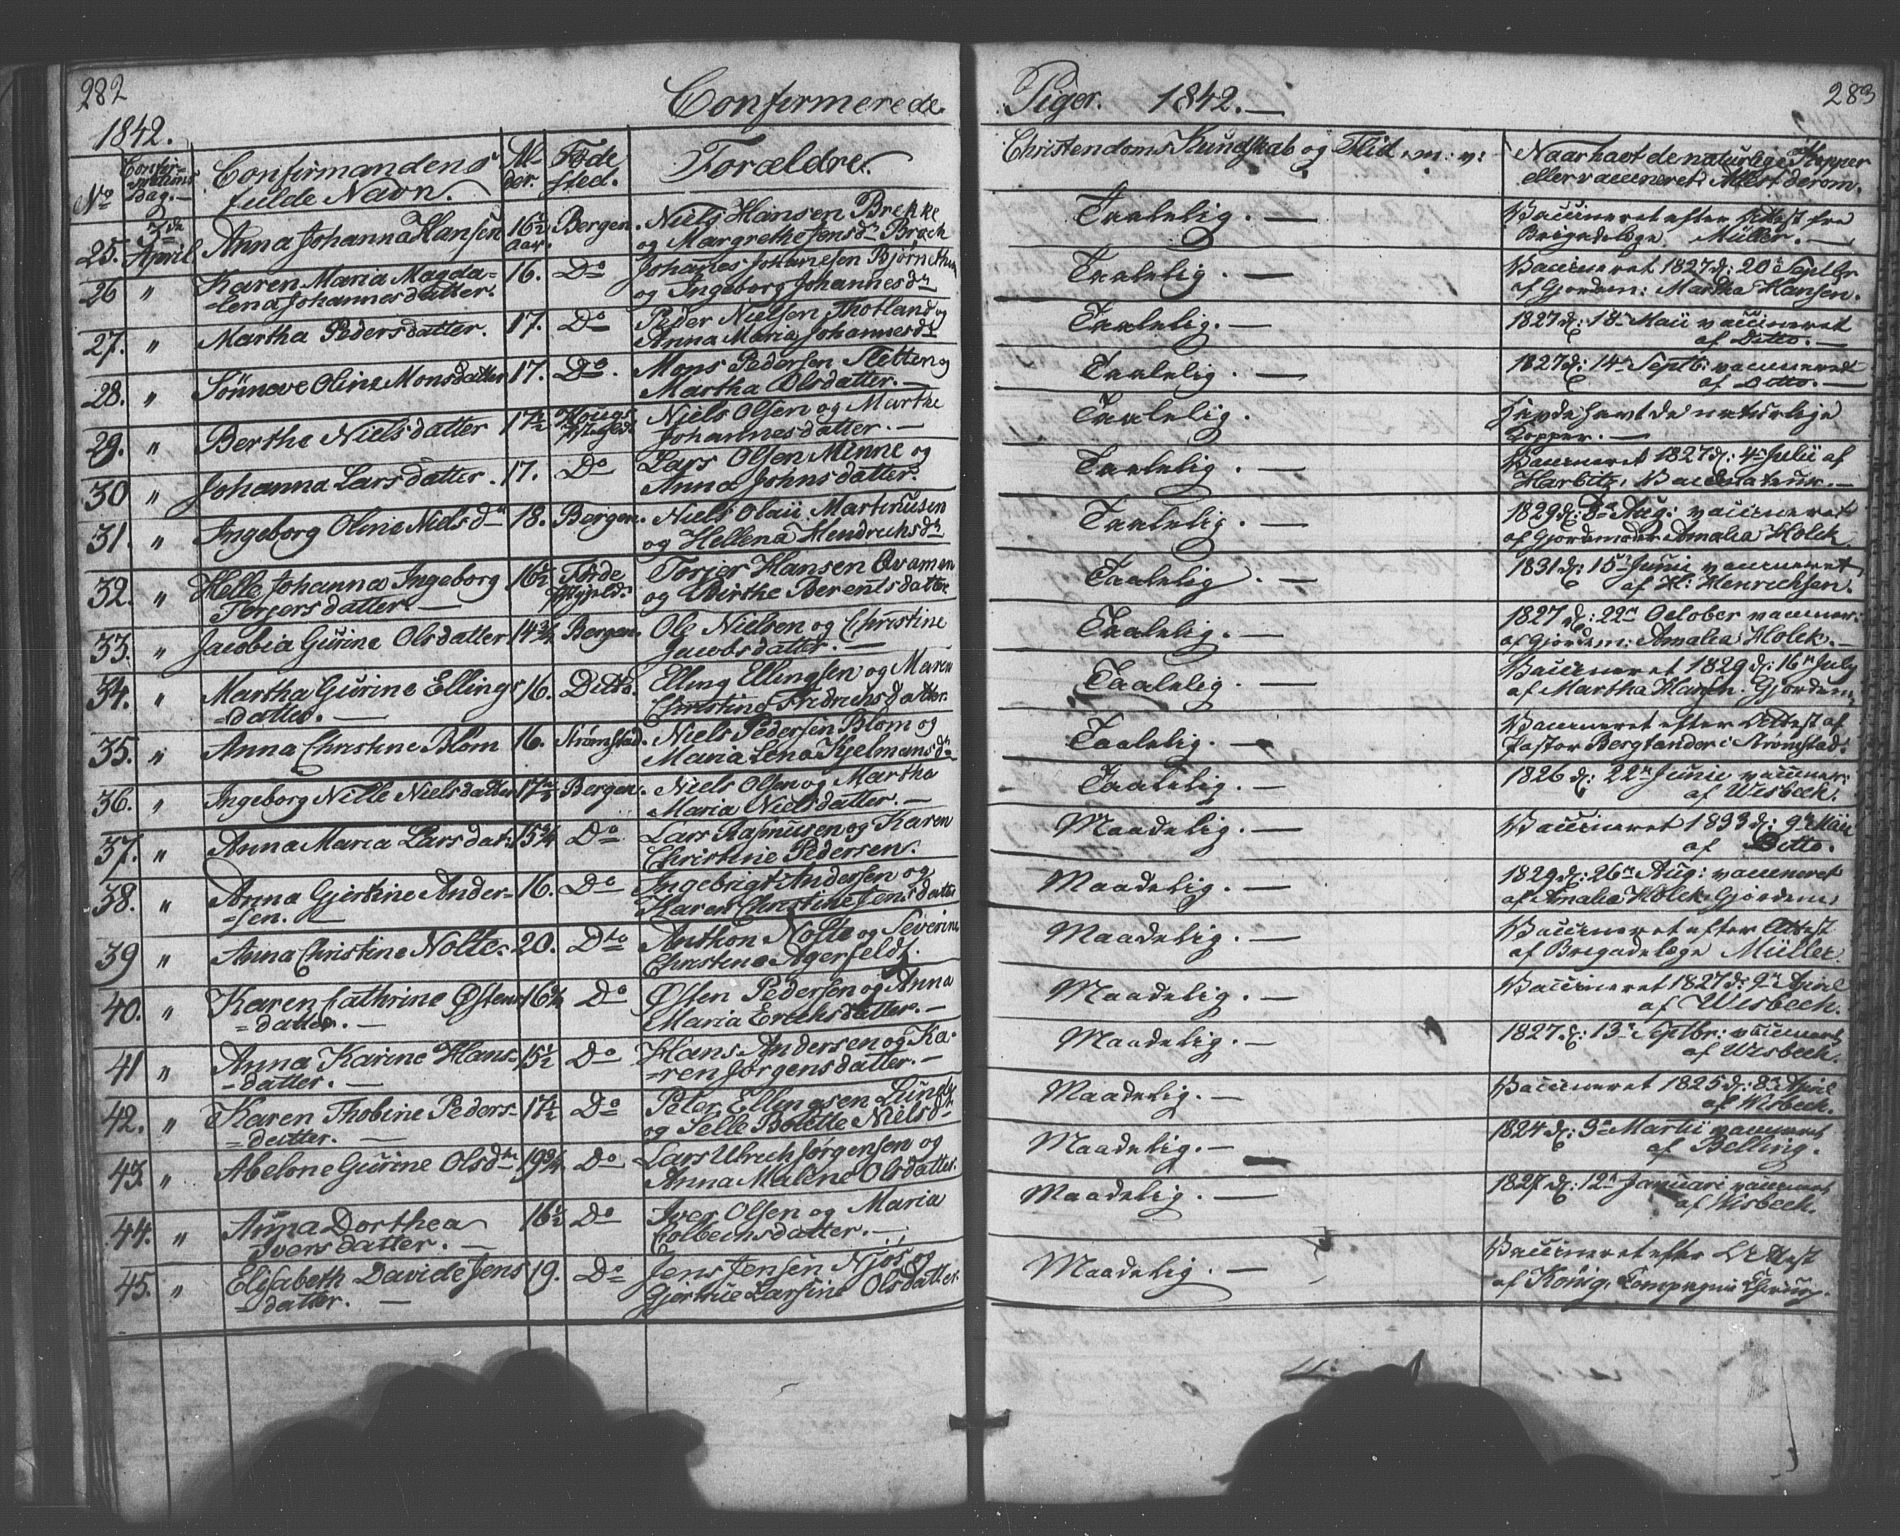 282
Confirmerede
Piger. 1842.
283
1842.
No
Confirmations Dag.
Confirmandens fulde Navn.
Alder.
Føde sted.
Forældre.
Christendoms Kundskab og Flid. m: v:
Naar havt de naturlige Kopper
eller vaccineret. Attest derom.
25. 3de April Anna Johanna Hansen 16½ Aar. Bergen. Niels Hansen Brekke
og Margrethe Jensdr Broch
Taalelig. Vaccineret efter Attest fra
Brigadelæge Müller.
26 " Karen Maria Magda-
lena Johannesdatter. 16. Do Johannes Johannesen Bjørnethun
og Ingeborg Johannesdr
Taalelig. Vaccineret 1827 d: 20 Septbr
af Gjordem: Martha Hansen.
27. " Martha Pedersdatter. 17. Do Peder Nielsen Thotland og
Anna Maria Johannesdr
Taalelig. 1827 d: 18n Maii vaccineret
af Ditto.
28. " Sønneve Oline Monsdatter 17. Do. Mons Pedersen Sletten og
Martha Olsdatter.
Taalelig. 1827 d: 14n Septb: vaccineret
af Ditto.
29. " Berthe Nielsdatter 17½ Hougs Niels Olsen og Marthe
Johannesdatter.
Taalelig. havt de naturlige
Kopper.
30 " Johanna Larsdatter. 17. Do Lars Olsen Minne og
Anna Johnsdatter.
Taalelig. Vaccineret 1827 d: 4n Julii af
Harbitz, Vaccinateur.
31. " Ingeborg Oline Nielsdr 18. Bergen. Niels Olaii Martinusen
og Hellena Hendrichsdr
Taalelig. 1829 d: Aug: vaccineret
af Gjordemoder Amalia Holck
32. " Helle Johanna Ingeborg
Torjersdatter. 16½ Førde Torjer Hansen Qvamen
og Birthe Berentsdatter
Taalelig. 1831 d: 15n Junii vaccineret
af H: Henrichsen.
33. " Jacobia Gurine Olsdatter 14¾ Bergen. Ole Nielsen og Christine
Jacobsdatter.
Taalelig. 1827 d: 22n October vacciner:
af Gjordem: Amalia Holck.
34. " Martha Gurine Ellings
=datter. 16. Ditto. Elling Ellingsen og Maren
Christine Fredrichsdatter.
Taalelig. Vaccineret 1829 d: 16n July
af Martha Hansen. Gjordem:
35. " Anna Christine Blom 16. Strømstad. Niels Pedersen Blom og
Maria Lena Kjelmansdr
Taalelig. Vaccineret efter Attest af
Pastor Bergtander i Strømstad.
36. " Ingeborg Nille Nielsdatter 17½ Bergen. Niels Olsen og Martha
Maria Nielsdatter.
Taalelig. 1826 d: 22n Junii vacciner:
af Wisbech.
37. " Anna Maria Larsdat: 15¾ Do Lars Rasmusen og Karen
Christine Pedersen.
Maadelig. Vaccineret 1833 d: 9n Maii
af Ditto.
38. " Anna Gjertine Ander-
sen. 16. Do Ingebrigt Andersen og
Karen Christine Jensdatter
Maadelig. 1829 d: 26n Aug: vaccineret
af Amalia Holck Gjordem:
39 " Anna Christine Nolte. 20. Dto Anthon Nolte og Severine
Christine Agerfeldt.
Maadelig. Vaccineret efter Attest
af Brigadelæge Müller.
40. " Karen Cathrine Østens
=datter. 16½ Do Østen Pedersen og Anna
Maria Erichsdatter.
Maadelig. Vaccineret 1827 d: 9n April
af Wisbech.
41 " Anna Karine Hans-
=datter. 15½ Do Hans Andersen og Ka-
=ren Jørgensdatter.
Maadelig. 1827. d: 13n Septbr: vaccineret
af Wisbech.
42. " Karen Thobine Peders-
=datter. 17½ Do Peter Ellingsen Lunde
og Selle Bolette Nielsdr
Maadelig. Vaccineret 1825 d: 8n April
af Wisbech.
43. " Abelone Gurine Olsdtr 19¾ Do Lars Ulrich Jørgensen og
Anna Malene Olsdatter.
Maadelig. 1824 d: 3n Martii vaccineret
af Belling.
44. " Anna Dorthea
Iversdatter. 16½ Do Iver Olsen og Maria
Colbechsdatter.
Maadelig. 1827 d: 12n Januari vaccineret
af Wisbech.
45. " Elisabeth Davide Jens
=datter. 19. Do Jens Jensen Njos og
Gjertrue Larsine Olsdatter.
Maadelig. Vaccineret efter Attest
af König, Compagnie Chirurg.